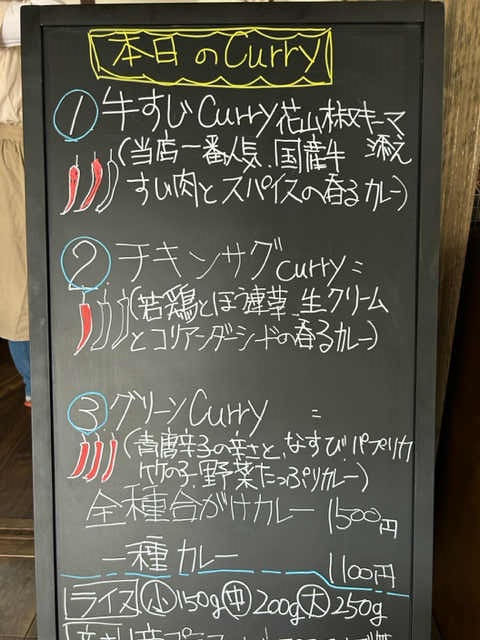 本日のCurry
① 牛すじCurry 花山椒キーマ添え
(当店一番人気.国産牛
すじ肉とスパイスの香るカレー)
② チキンサグcurry =
(若鶏とほう蓮草 生クリーム
とコリアンダーシードの香るカレー)
③ グリーンCurry =
(青唐辛子の辛さと、なすび.パプリカ
竹の子.野菜たっぷりカレー)
全種合がけカレー 1500円
一種カレー 1100円
ライス 小 150g 中 200g 大 250g